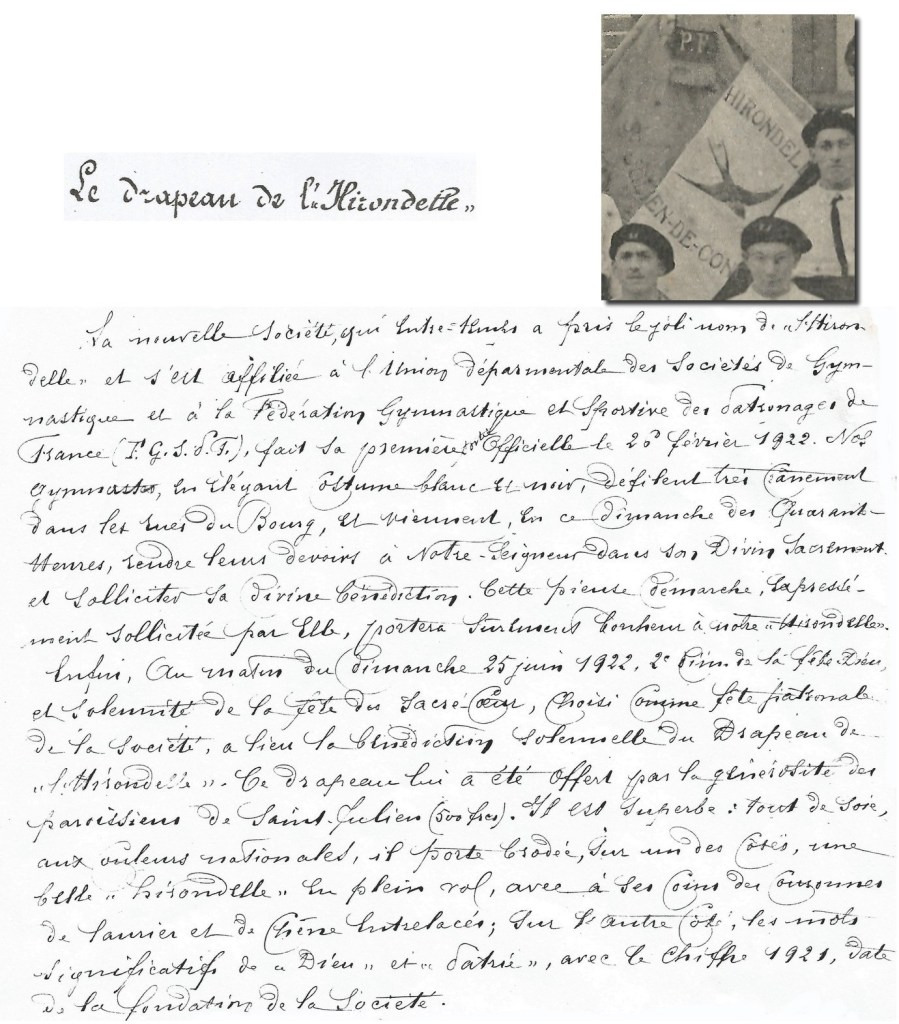 P.F.
HIRONDEL
EN-DE-CON
Le drapeau de l'"Hirondelle"
La nouvelle Société, qui entre-temps a pris le joli nom de "l'Hiron-
delle" et s'est affiliée à l'Union départementale des Sociétés de Gym-
nastique et à la Fédération Gymnastique et Sportive des Patronages de
France (F.G.S.P.F.), fait sa première sortie Officielle le 20 février 1922. Nos
gymnastes, en élégant costume blanc et noir, défilent très crânement
dans les rues du Bourg, et viennent, en ce dimanche des Quarant-
Heures, rendre leurs devoirs à Notre-Seigneur dans son Divin Sacrement
et solliciter sa divine bénédiction. Cette pieuse démarche, expressé-
ment sollicitée par Elle, portera sûrement bonheur à notre "Hirondelle".
Enfin, au matin du dimanche 25 juin 1922, 2e dim. de la fête-Dieu,
et solennité de la fête du Sacré-Cœur, choisi comme fête patronale
de la Société, a lieu la bénédiction solennelle du Drapeau de
"l'Hirondelle". Ce drapeau lui a été offert par la générosité des
paroissiens de Saint-Julien (500 frcs). Il est superbe : tout de soie,
aux couleurs nationales, il porte brodée, sur un des côtés, une
belle "hirondelle" en plein vol, avec à ses coins des couronnes
de laurier et de chêne entrelacés; sur l'autre côté, les mots
significatifs de "Dieu" et "Patrie", avec le chiffre 1921, date
de la fondation de la Société.